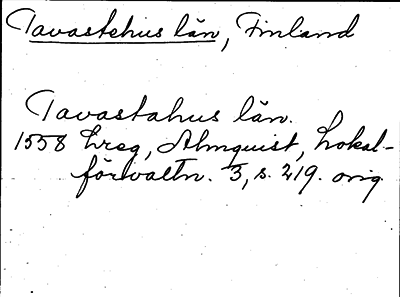 Tavastehus län, Finland
Tavastahus län.
1558 hreg, Almquist, Lokal-
förvaltn. 3, s. 219. orig